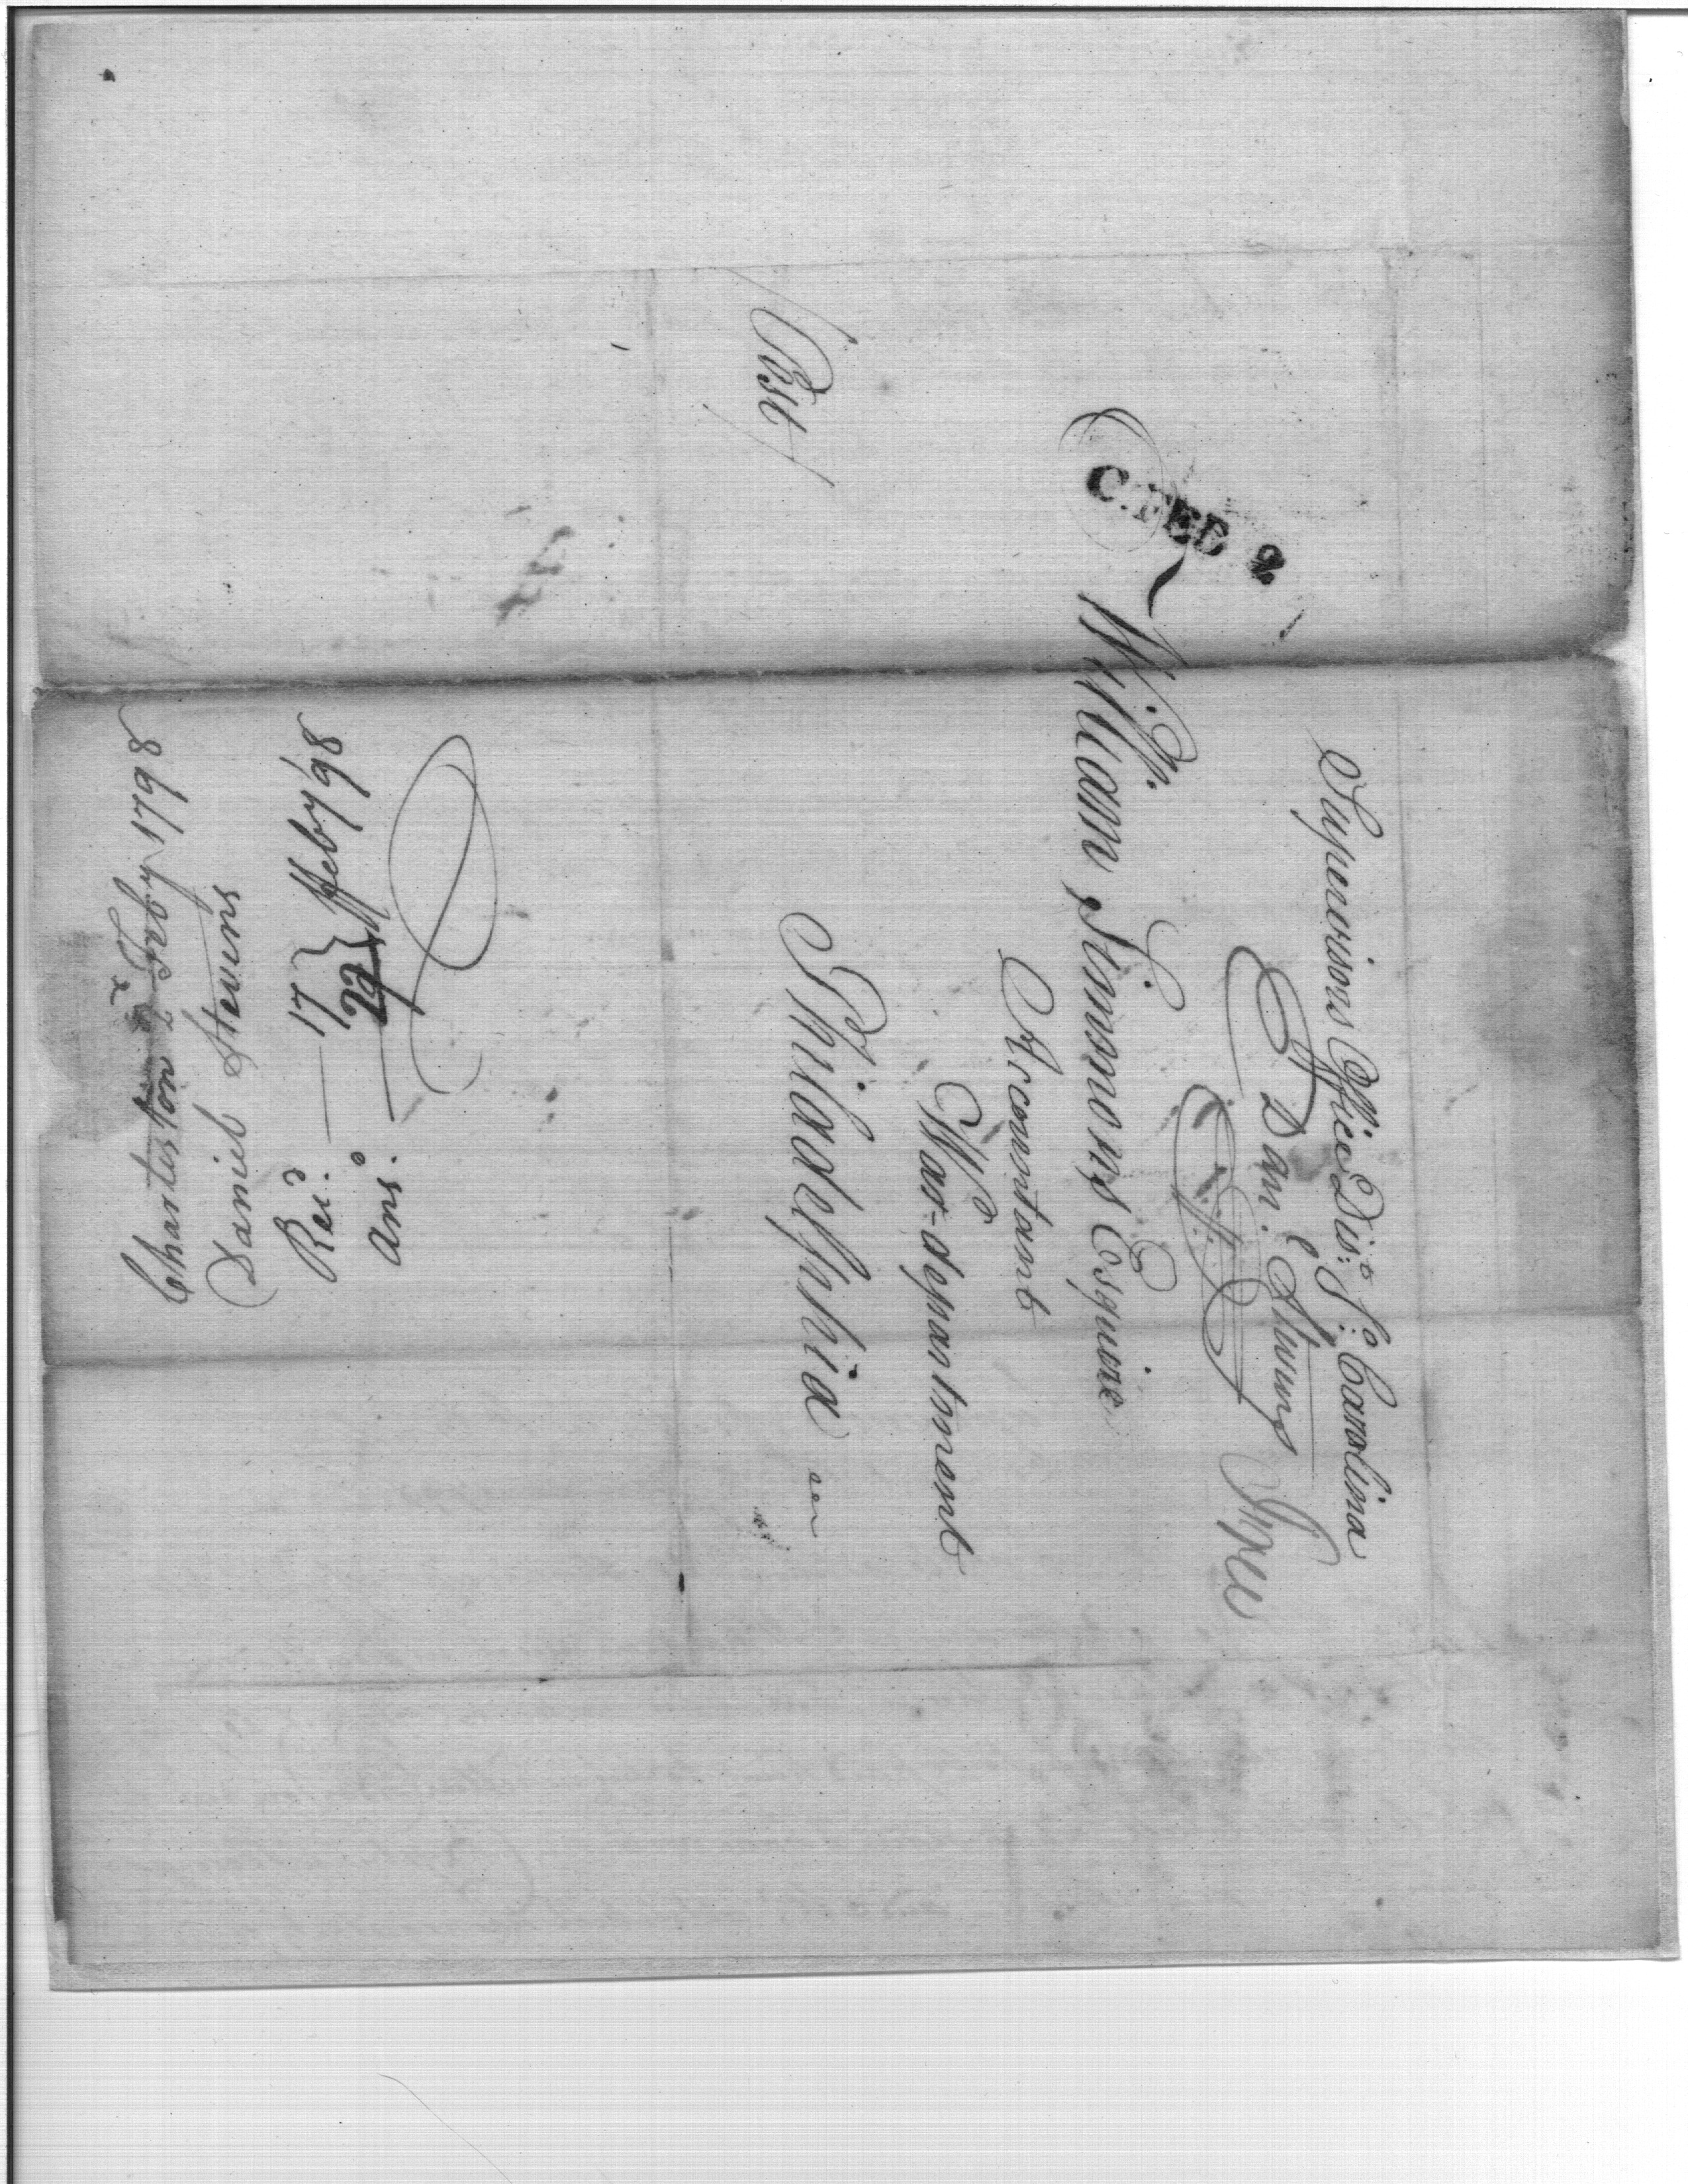 Supervisors Office Dis:t S:o Carolina
Dan:l Stevens
Free
C. FEB 2
William Simmons Esquire
Accountant
War-department
Philadelphia
(Post)
Charleston 2d Feby 1798
Daniel Stevens
Rec:d 17 } Feby/98
Ans:d 22